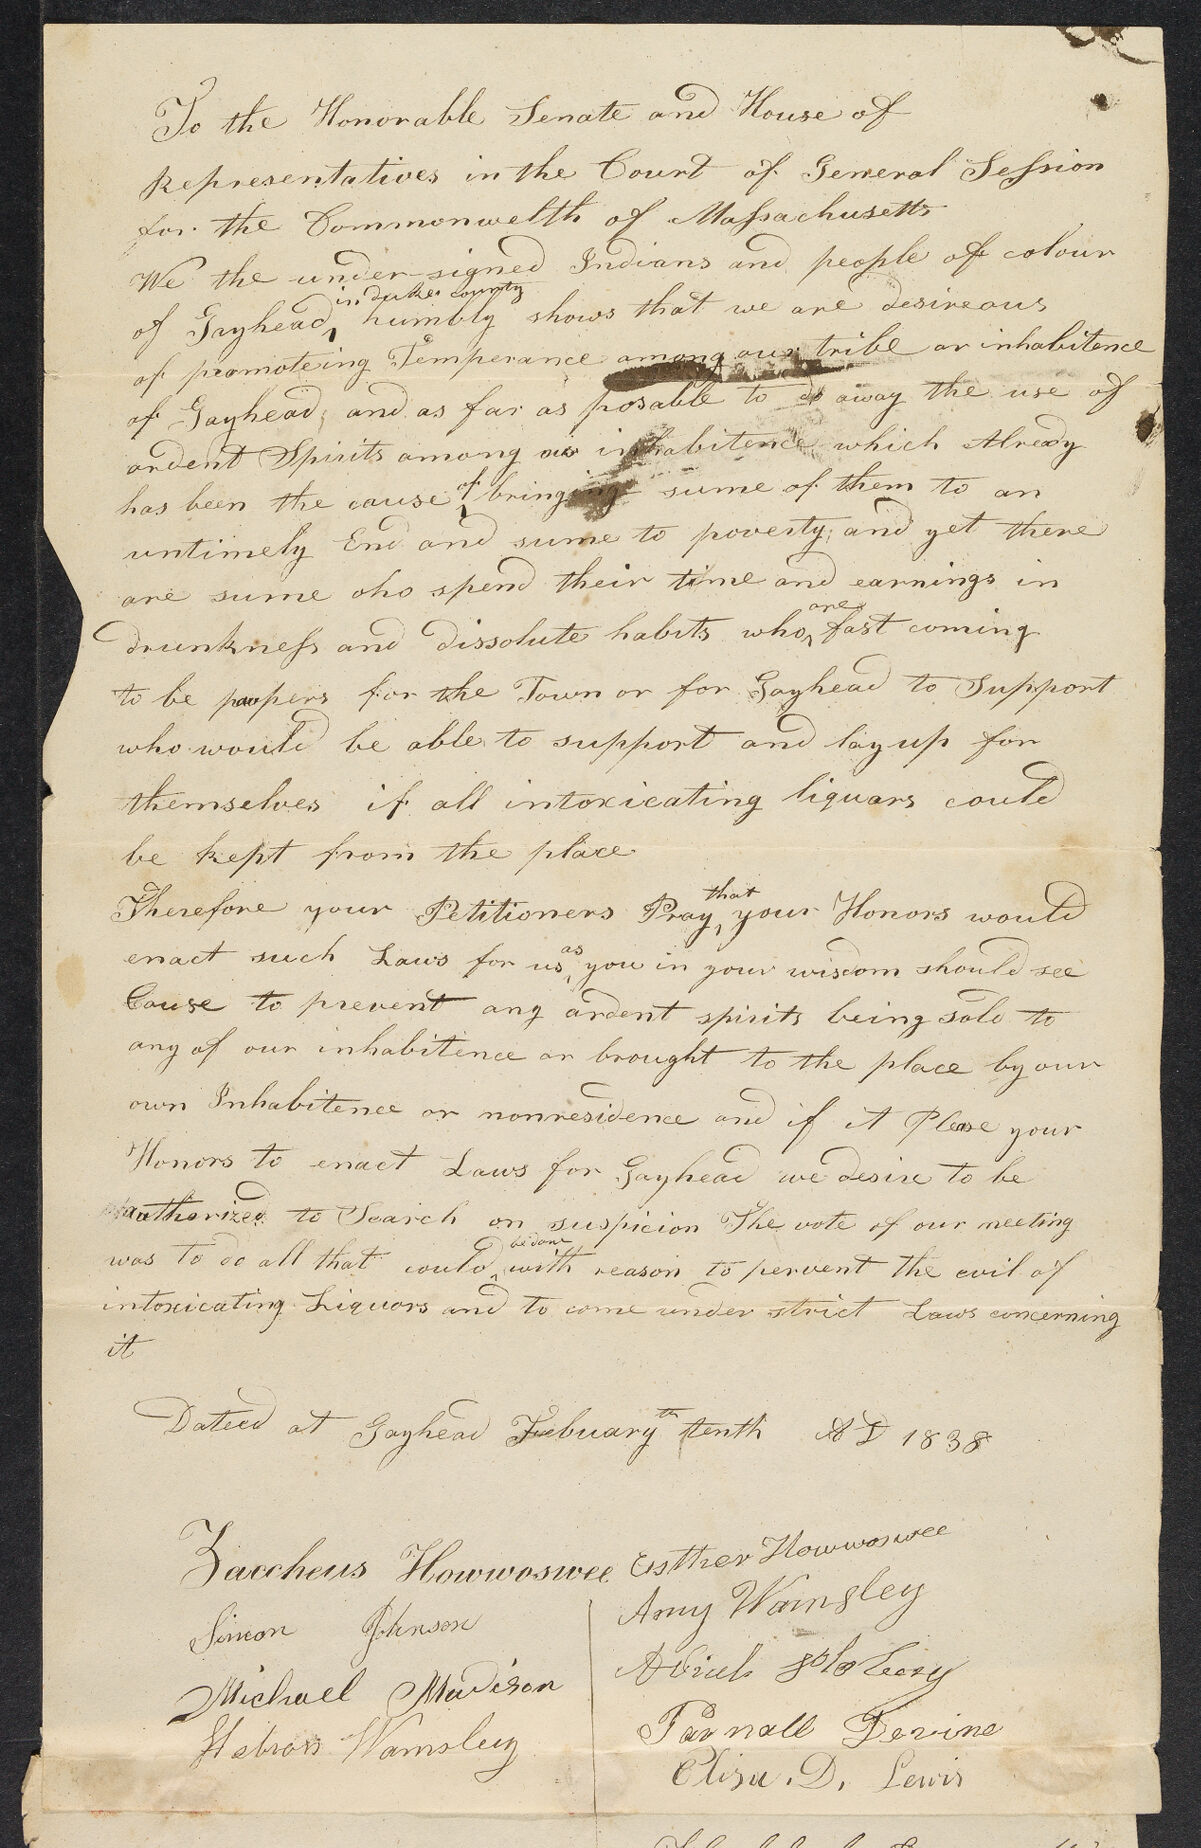 To the Honorable Senate and House of
Representatives in the Court of General Session
for the Commonwelth of Massachusetts
We the under-signed Indians and people of colour
in dukes county
of Gayhead, humbly shows that we are desireous
of promoteing Temperance among our tribe or inhabitence
of Gayhead, and as far as posable to do away the use of
ardent Spirits among our inhabitence which Already
has been the cause of bringing sume of them to an
untimely End and sume to poverty, and yet there
are sume who spend their time and earnings in
drunkness and dissolute habits who are fast coming
to be paopers for the Town or for Gayhead to Support
who would be able to support and lay up for
themselves if all intoxicating liquars could
be kept from the place
Therefore your Petitioners Pray that your Honors would
enact such Laws for us as you in your wisdom should see
Cause to prevent any ardent spirits being sold to
any of our inhabitence or brought to the place by our
own Inhabitence or nonresidence and if it Please your
Honors to enact Laws for Gayhead we desire to be
authorized to Search on suspicion The vote of our meeting
was to do all that could be done with reason to pervent the evil of
intoxicating Liquors and to come under strict Laws concerning
it
Dated at Gayhead Febuary th tenth AD 1838
Zaccheus Howwoswee Esther Howwoswee
Simon Johnson Amy Wamsley
Michael Madison Abiah
Hebron Wamsley Parnall Devine
Eliza. D. Lewis